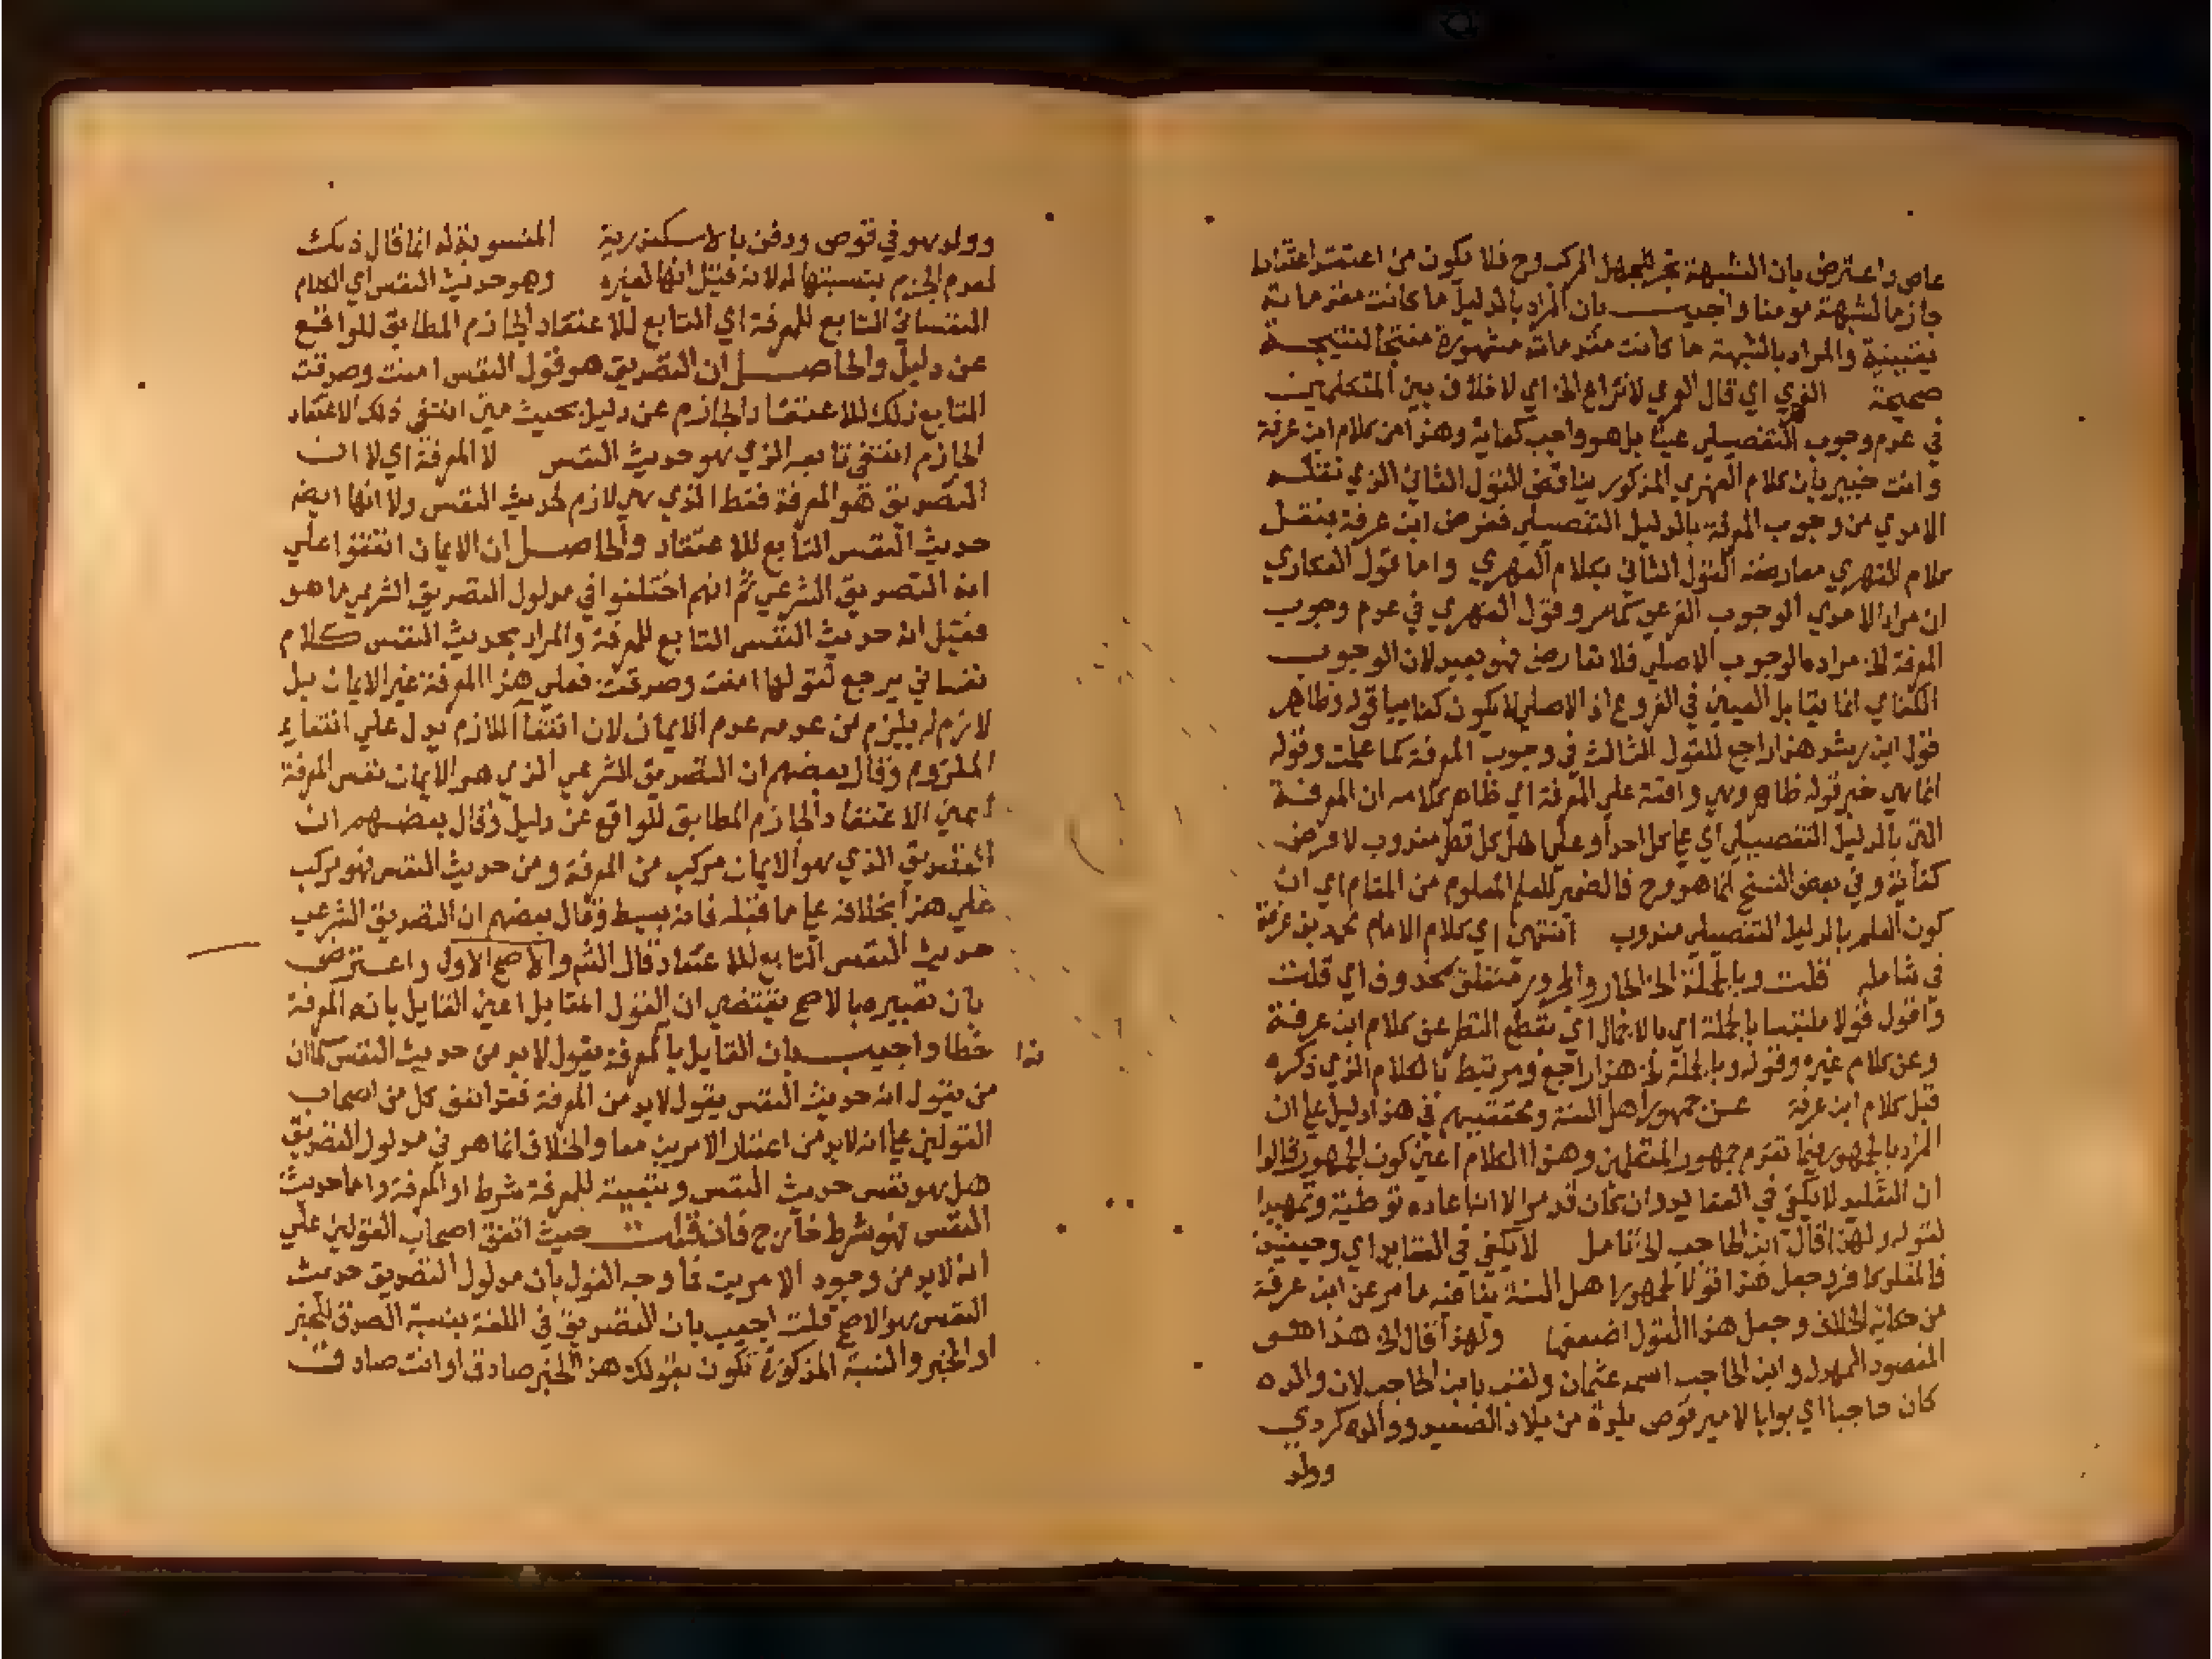 عاص واعترض بان الشبهة تجر للجهل المركب وح فلا يكون من اعتقد اعتقادا
جازما لشبهة مومنا واجيب بان المراد بالدليل ما كانت مقدماته
يقينية والمراد بالشبهة ما كانت مقدماته مشهورة منتجا لنتيجة
صحيحة الذي اي قال الذي لانزاع الخ اي لا خلاف بين المتكلمين
في عدم وجوب التفصيلي عينا بل هو واجب كفاية وهذا من كلام ابن عرفة
وانت خبير بان كلام الفهري المذكور يناقض القول الثاني الذي نقله
الامدي من وجوب المعرفة بالدليل التفصيلي فغرض ابن عرفة بنقل
كلام الفهري معارضة القول الثاني بكلام الفهري واما قول العكاري
ان مراد الامدي الوجوب الفرعي كما مر وقول الفهري في عدم وجوب
المعرفة الخ مراده الوجوب الاصلي فلا تعارض فهو بعيد لان الوجوب
الكفاي انما يقابل العيني في الفروع اذ الاصلي لا يكون كفاييا قوله وظاهر
قول ابن رشد هذا راجع للقول الثالث في وجوب المعرفة كما علمت وقوله
انما هي خبر قوله ظاهر وهي واقعة علي المعرفة اي ظاهر كلامه ان المعرفة
التي بالدليل التفصيلي اي علي كل احد او علي اهل كل قطر مندوب لا فرض
كفاية وفي بعض النسخ انما هو وح فالضمير للعلم المعلوم من المقام اي ان
كون العلم بالدليل التفصيلي مندوب انتهي اي كلام الامام محمد بن عرفة
في شامله قلت وبالجملة الخ الجار والمجرور متعلق بمحذوف اي قلت
واقول قولا ملتبسا بالجملة اي بالاجمال اي بقطع النظر عن كلام ابن عرفة
وعن كلام غيره وقوله وبالجملة الخ هذا راجع ومرتبط بالكلام الذي ذكره
قبل كلام ابن عرفة عن جمهور اهل السنة ومحققيهم في هذا دليل علي ان
المراد بالجمهور فيما تقدم جمهور المتكلمين وهذا الكلام اعني كون الجمهور قالوا
ان التقليد لا يكفي في العقايد وان كان قد مر الا انه اعاده توطئة وتمهيدا
لقوله ولهذا قال ابن الحاجب الخ تامل لا يكفي في العقايد اي وحينيذ
فالمقلد كافر وجعل هذا قولا لجمهور اهل السنة ينافيه ما مر عن ابن عرفة
من حكاية الخلاف وجعل هذا القول اضعفها ولهذا قال الخ هذا هو
المقصود الممهد له وابن الحاجب اسمه عثمان ولقب بابن الحاجب لان والده
كان حاجبا اي بوابا لامير قوص بلدة من بلاد الصعيد ووالده كردي
وولد
وولد هو في قوص ودفن بالاسكندرية المنسوبة له انما قال ذلك
لعدم الجزم بنسبتها له لانه قيل انها لغيره وهو حديث النفس اي الكلام
النفساني التابع للمعرفة اي التابع للاعتقاد الجازم المطابق للواقع
عن دليل والحاصل ان التصديق هو قول النفس امنت وصدقت
التابع ذلك للاعتقاد الجازم عن دليل بحيث متي انتفي ذلك الاعتقاد
الجازم انتفي تابعه الذي هو حديث النفس لا المعرفة اي لا ان
التصديق هو المعرفة فقط الذي هي لازم لحديث النفس ولا انها ايض
حديث النفس التابع للاعتقاد والحاصل ان الايمان اتفقوا علي
انه التصديق الشرعي ثم انهم اختلفوا في مدلول التصديق الشرعي ما هو
فقيل انه حديث النفس التابع للمعرفة والمراد بحديث النفس كلام
نفساني يرجع لقولها امنت وصدقت فعلي هذا المعرفة غير الايمان بل
لازم له يلزم من عدمه عدم الايمان لان انتفا اللازم يدل علي انتفاء
الملزوم وقال بعضهم ان التصديق الشرعي الذي هو الايمان نفس المعرفة
اعني الاعتقاد الجازم المطابق للواقع عن دليل وقال بعضهم ان
التصديق الذي هو الايمان مركب من المعرفة ومن حديث النفس فهو مركب
علي هذا بخلافه علي ما قبله فانه بسيط وقال بعضهم ان التصديق الشرعي
حديث النفس التابع للاعتقاد قال الشم والاصح الاول واعترض
بان تعبيره بالاصح يقتضي ان القول المقابل اعني القايل بانه المعرفة
خطا واجيب بان القايل بالمعرفة يقول لابد من حديث النفس كما ان
من يقول انه حديث النفس يقول لابد من المعرفة فقد اتفق كل من اصحاب
القولين علي انه لابد من اعتبار الامرين معا والخلاف انما هو في مدلول التصديق
هل هو نفس حديث النفس وتبعيته للمعرفة شرط او المعرفة واما حديث
النفس فهو شرط خارج فان قلت حيث اتفق اصحاب القولين علي
انه لابد من وجود الامرين فما وجه القول بان مدلول التصديق حديث
النفس هو الاصح قلت اجيب بان التصديق في اللغة بنسبة الصدق للمخبر
او الخبر والنسبة المذكورة تكون بقولك هذا الخبر صادق او انت صادق